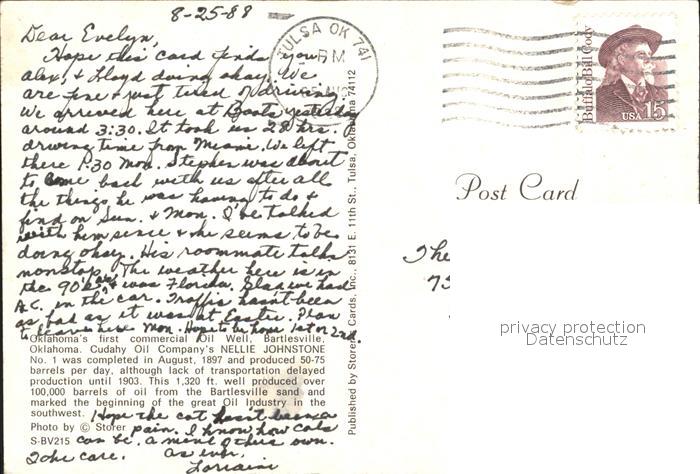 8-25-88
Dear Evelyn,
Hope this card finds you
Alex, & Lloyd doing okay. We
are fine & just tired of driving.
We arrived here at Boots yesterday
around 3:30. It took us 28 hrs.
driving time from Miami. We left
there 1:30 Mon. Stephen was about
to come back with us after all
the things he was having to do &
find on Sun. & Mon. I've talked
with him since & he seems to be
doing okay. His roommate talks
nonstop. The weather here is in
the 90's & was Florida. Glad we had
A.C. in the car. Traffic hasn't been
as bad as it was at Easter. Plan
to leave here Mon. Hope to be home 1st or 2nd.
Oklahoma's first commercial Oil Well, Bartlesville,
Oklahoma. Cudahy Oil Company's NELLIE JOHNSTONE
No. 1 was completed in August, 1897 and produced 50-75
barrels per day, although lack of transportation delayed
production until 1903. This 1,320 ft. well produced over
100,000 barrels of oil from the Bartlesville sand and
marked the beginning of the great Oil Industry in the
southwest. Hope the cat hasn't been a
Photo by © Storer pain. I know how cats
S-BV215 can be. a mind of their own.
Take care. As ever,
Lorraine
Published by Storer Cards, Inc., 8131 E. 11th St., Tulsa, Oklahoma 74112
TULSA OK 741
PM
Buffalo Bill Cody
USA 15
Post Card
The
75
privacy protection
Datenschutz